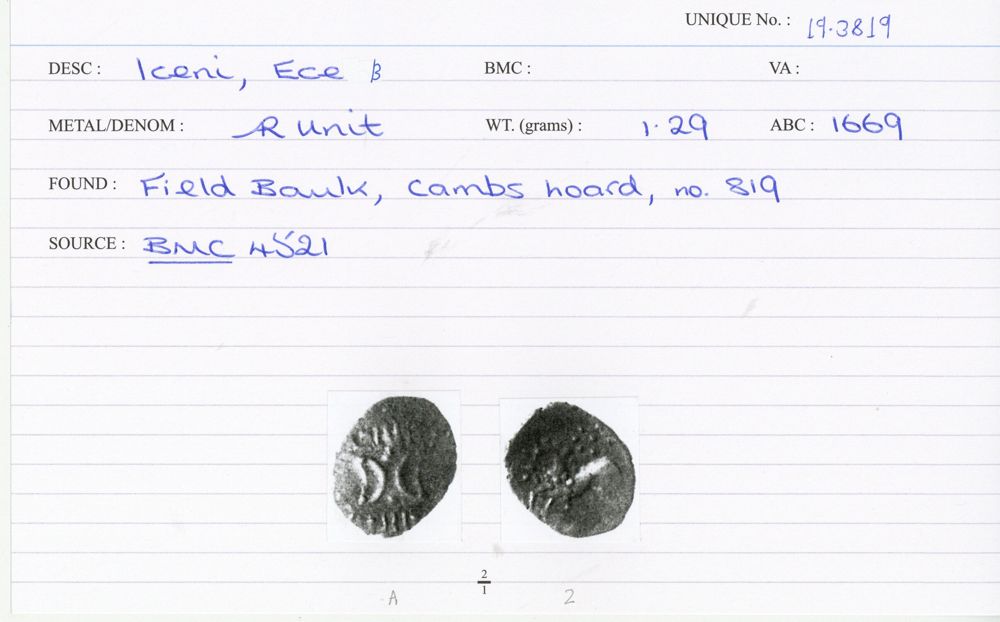 UNIQUE No. : 19.3819
DESC : Iceni, Ece β BMC : VA :
METAL/DENOM : ÆR Unit WT. (grams) : 1.29 ABC : 1669
FOUND : Field Baulk, Cambs hoard, no. 819
SOURCE : BMC 4521
2
1
A 2